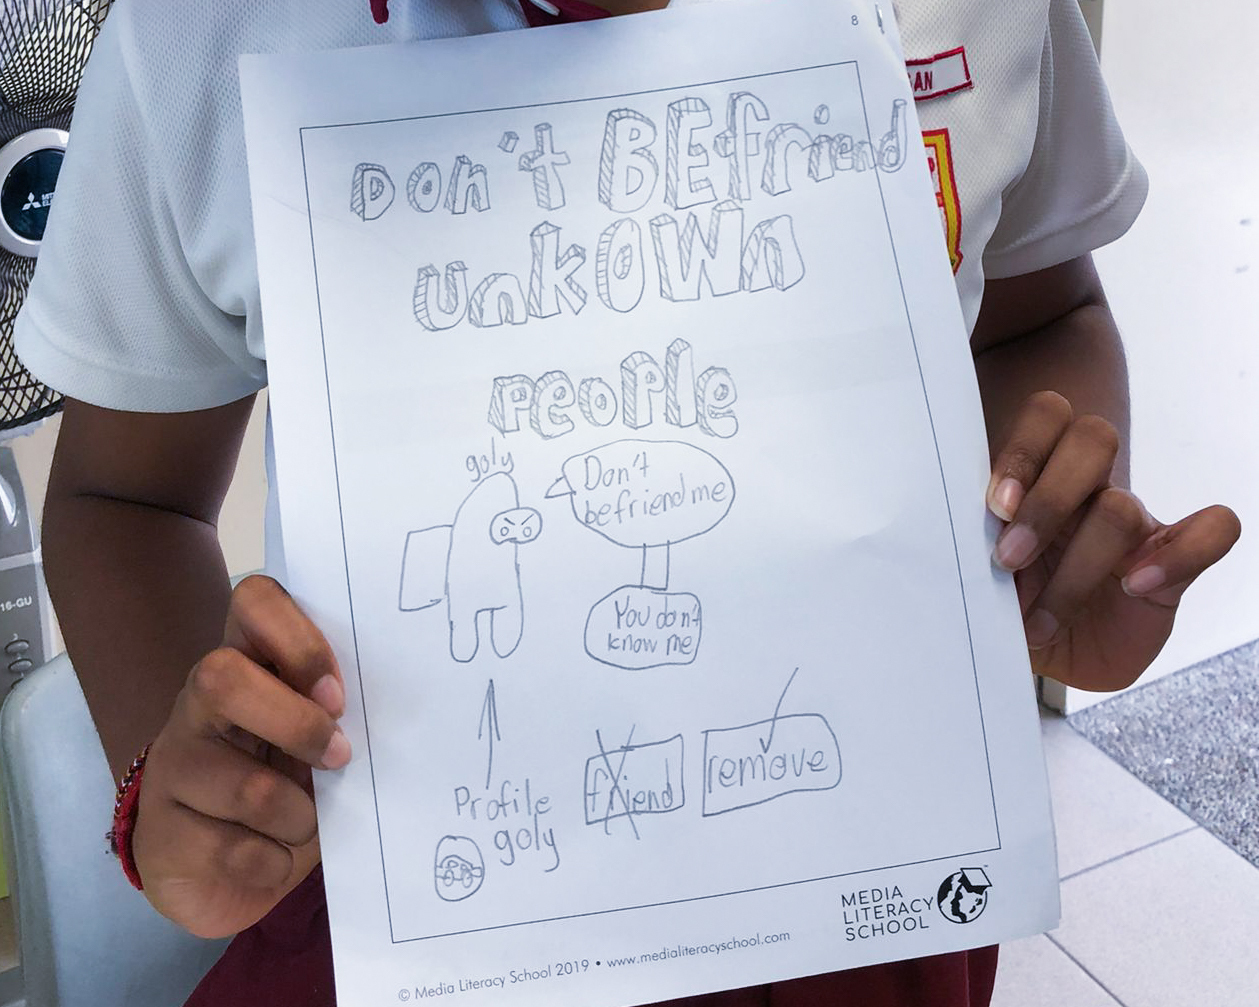 8
AN
Don't BEfriend
unkOWn
PEOPle
goly
Don't
befriend me
You don't
know me
Profile
goly
friend
remove
MEDIA
LITERACY
SCHOOL
© Media Literacy School 2019 • www.medialiteracyschool.com
16-GU